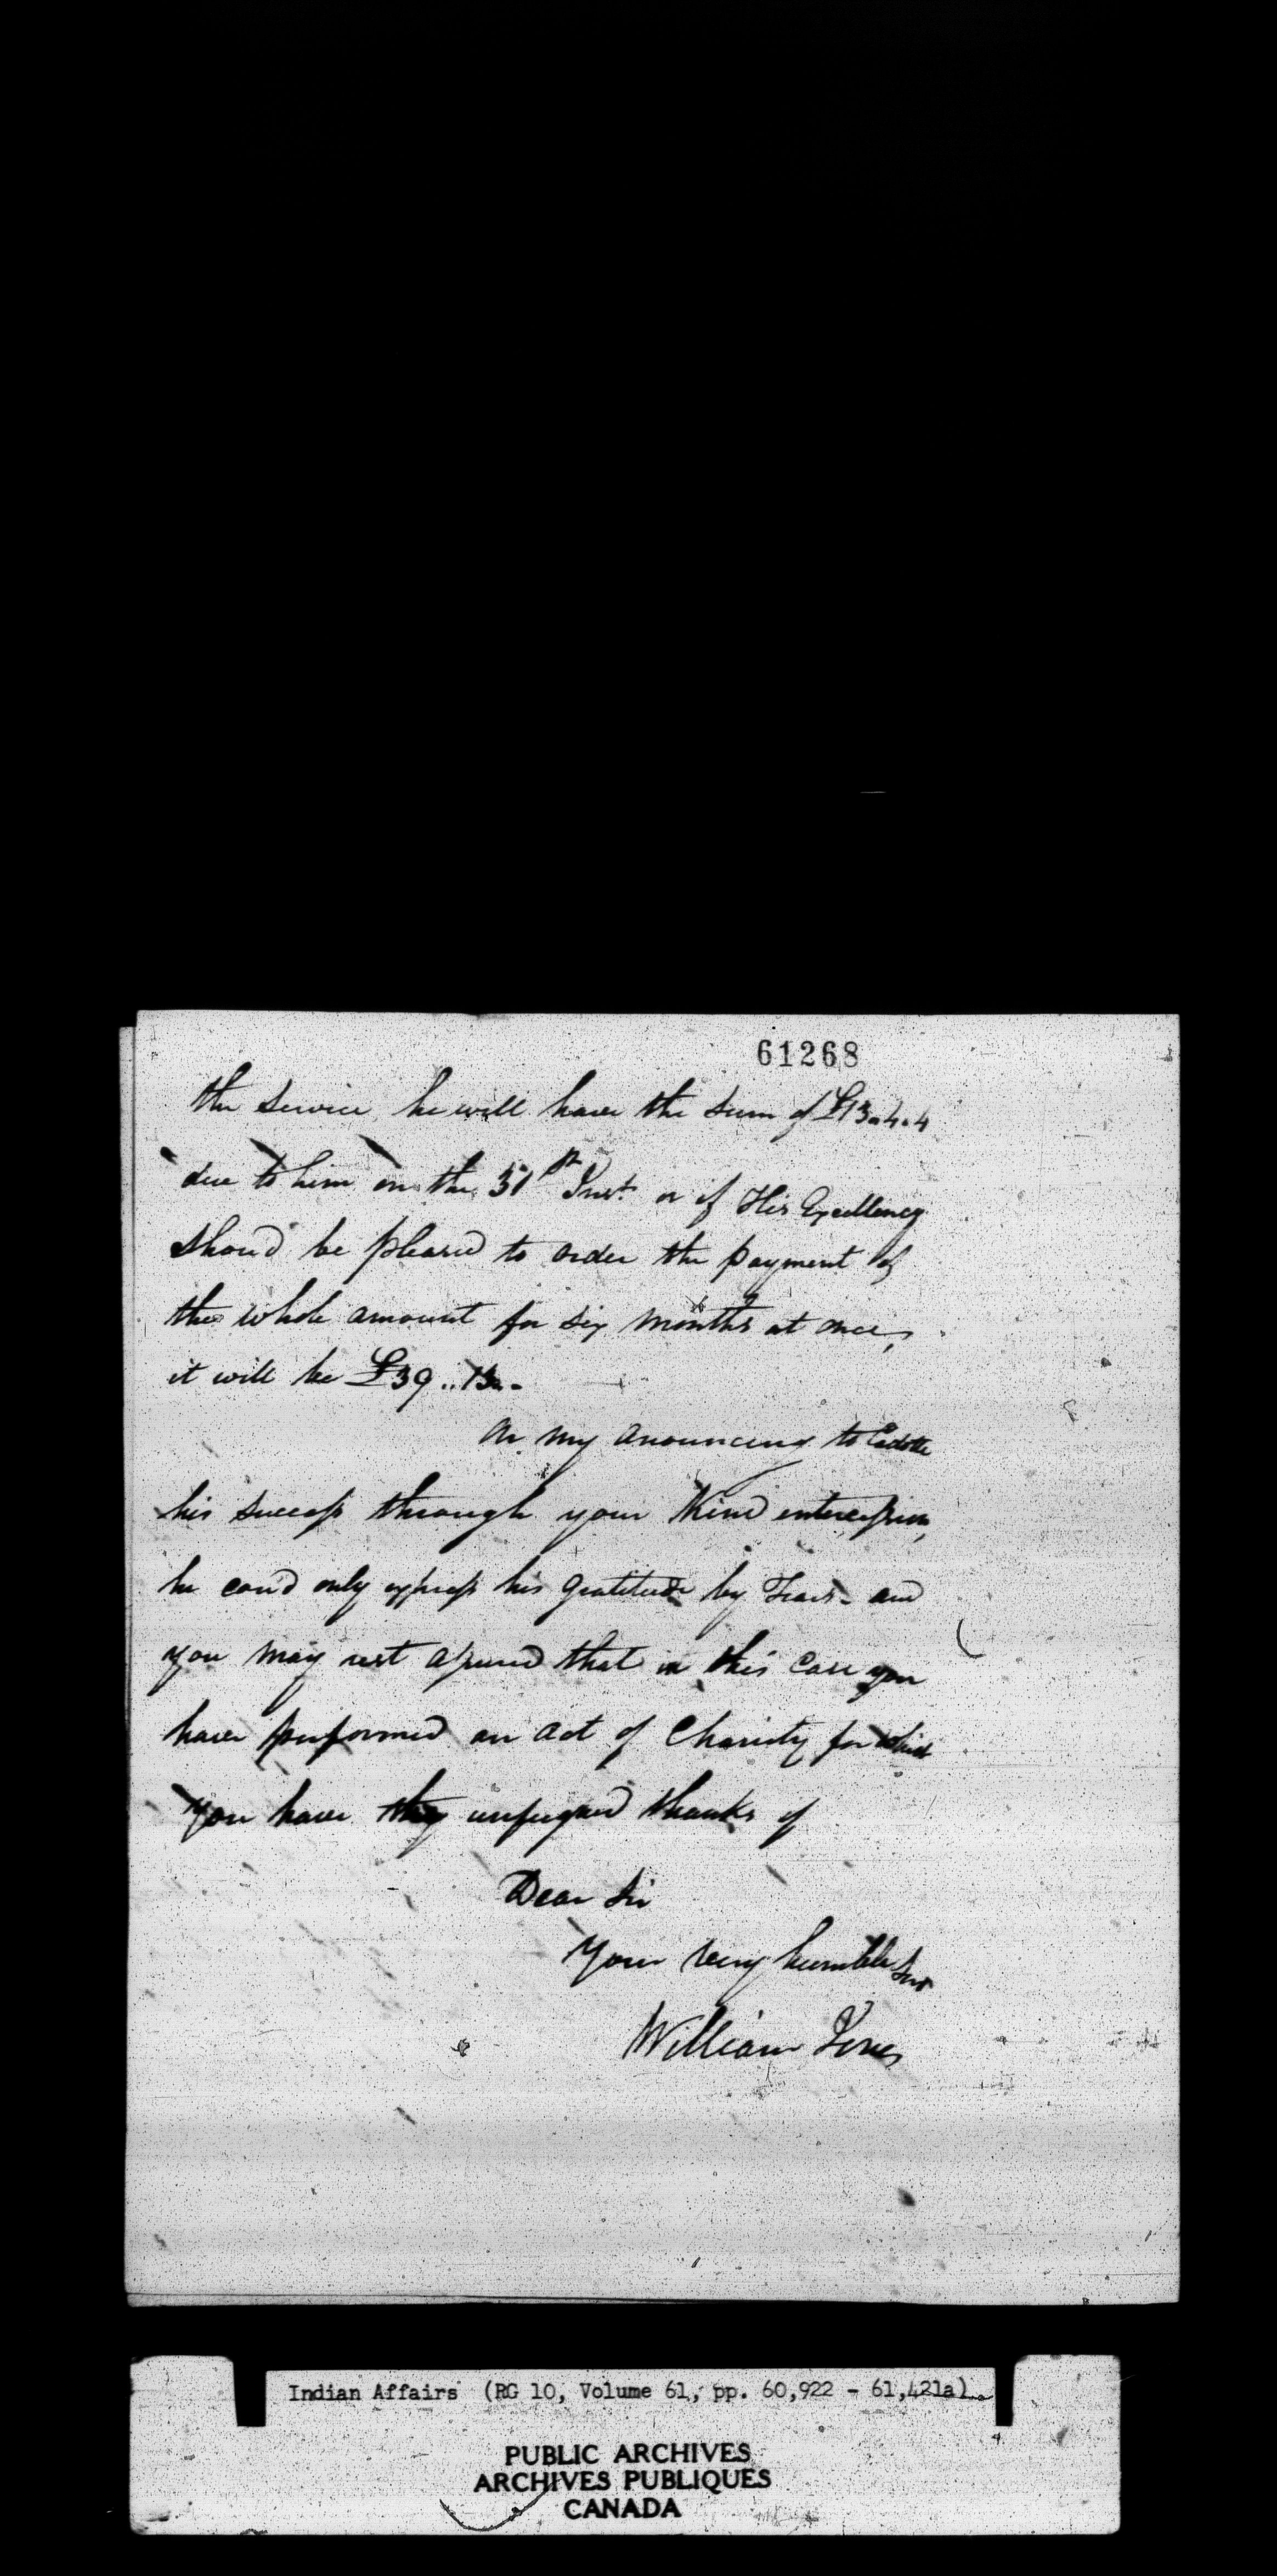 61268
the service he will have the sum of £13.4.4
due to him on the 31st Inst. or if His Excellency
shoud be pleased to order the payment of
the whole amount for six months at once,
it will be £39..13.-
On my anouncing to Cadotte
his success through your Kind intercession,
he coud only express his gratitude by Tears - and
you may rest assured that in this case you
have performed an act of Charity for which
you have the unfeigned thanks of
Dear Sir
Your very humble Servt
William Jones
Indian Affairs (RG 10, Volume 61, pp. 60,922 - 61,421a)
PUBLIC ARCHIVES
ARCHIVES PUBLIQUES
CANADA